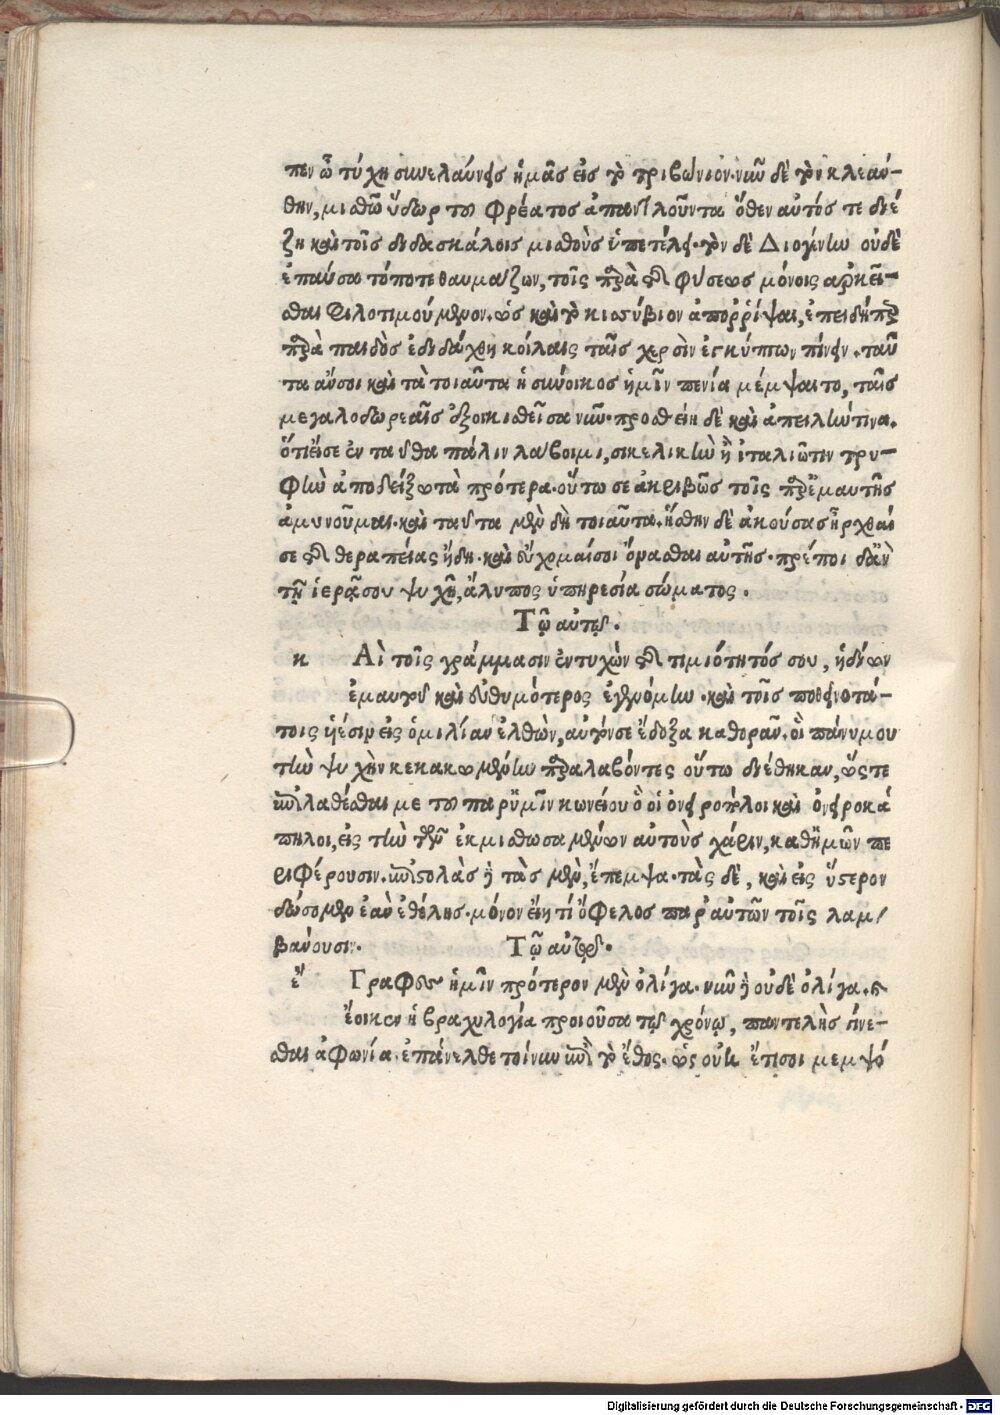 πεν ὦ τύχη συνελαύνεις ἡμᾶς εἰς τὸ τριβώνιον· νῦν δὲ τὸν κλεάν-
θην, μισθοῦ ὕδωρ τοῦ φρέατος ἀπαντλοῦντα ὅθεν αὐτός τε διέ
ζη καὶ τοῖς διδασκάλοις μισθοὺς ὑπετέλει· τὸν δὲ Διογένην οὐδὲ
ἐπαύσα τόποτε θαυμάζων, τοῖς παρὰ τῆς φύσεως μόνοις ἀρκεῖ-
σθαι φιλοτιμούμενον· ὡς καὶ τὸ κισύβιον ἀπορρίψαι, ἐπειδήπερ
παρὰ παιδὸς ἐδιδάχθη κοίλαις ταῖς χερσὶν ἐγκύπτων πίνειν· ταῦ
τα ἄν σοι καὶ τὰ τοιαῦτα ἡ σύνοικος ἡμῖν πενία μέμψαιτο, ταῖς
μεγαλοδωρεαῖς ἐξοικισθεῖσα νῦν· προσθείη δὲ καὶ ἀπειλήν τινα·
ὅτι εἴ σε ἐν ταῦθα πάλιν λάβοιμι, σικελικὴν ἢ ἰταλιῶτιν τρυ-
φὴν ἀποδείξω τὰ πρότερα· οὕτω σε ἀκριβῶς τοῖς παρ' ἐμαυτῆς
ἀμυνοῦμαι· καὶ ταῦτα μὲν δὴ τοιαῦτα· ἥσθην δὲ ἀκούσας ἦρχθαί
σε τῆς θεραπείας ἤδη· καὶ εὔχομαί σοι ὄνασθαι αὐτῆς· πρέποι δ' ἂν
τῇ ἱερᾷ σου ψυχῇ, ἄλυπος ὑπηρεσία σώματος.
Τῷ αὐτῷ.
κ Αὶ τοῖς γράμμασιν ἐντυχὼν τῆς τιμιότητός σου, ἡδίων
ἐμαυτοῦ καὶ εὐθυμότερος ἐγενόμην· καὶ τοῖς ποθεινοτά-
τοις ὑέσιν εἰς ὁμιλίαν ἐλθὼν, αὐτόν σε ἔδοξα καθορᾶν· οἳ πάνυ μου
τὴν ψυχὴν κεκακωμένην παραλαβόντες οὕτω διέθηκαν, ὥστε
ἐπιλαθέσθαι με τοῦ παρ' ὑμῖν κωνείου ὃ οἱ ὀνειροπῶλοι καὶ ὀνειροκά
πηλοι, εἰς τὴν τῶν ἐκμισθωσαμένων αὐτοὺς χάριν, καθ' ἡμῶν πε
ριφέρουσιν· ἐπιστολὰς ἢ τὰς μὲν, ἔπεμψα· τὰς δὲ, καὶ εἰς ὕστερον
δώσομεν ἐὰν ἐθέλης· μόνον εἴη τί ὄφελος παρ' αὐτῶν τοῖς λαμ/
βάνουσιν. Τῷ αὐτῷ.
ἔ Γραφες ἡμῖν πρότερον μὲν ὀλίγα· νῦν ἢ οὐδὲ ὀλίγα· καὶ
ἔοικεν ἡ βραχυλογία προιοῦσα τῷ χρόνῳ, παντελὴς γίνε-
σθαι ἀφωνία· ἐπάνελθε τοίνυν ἐπὶ τὸ ἔθος· ὡς οὐκ ἔτι σοι μεμψό
Digitalisierung gefördert durch die Deutsche Forschungsgemeinschaft - DFG